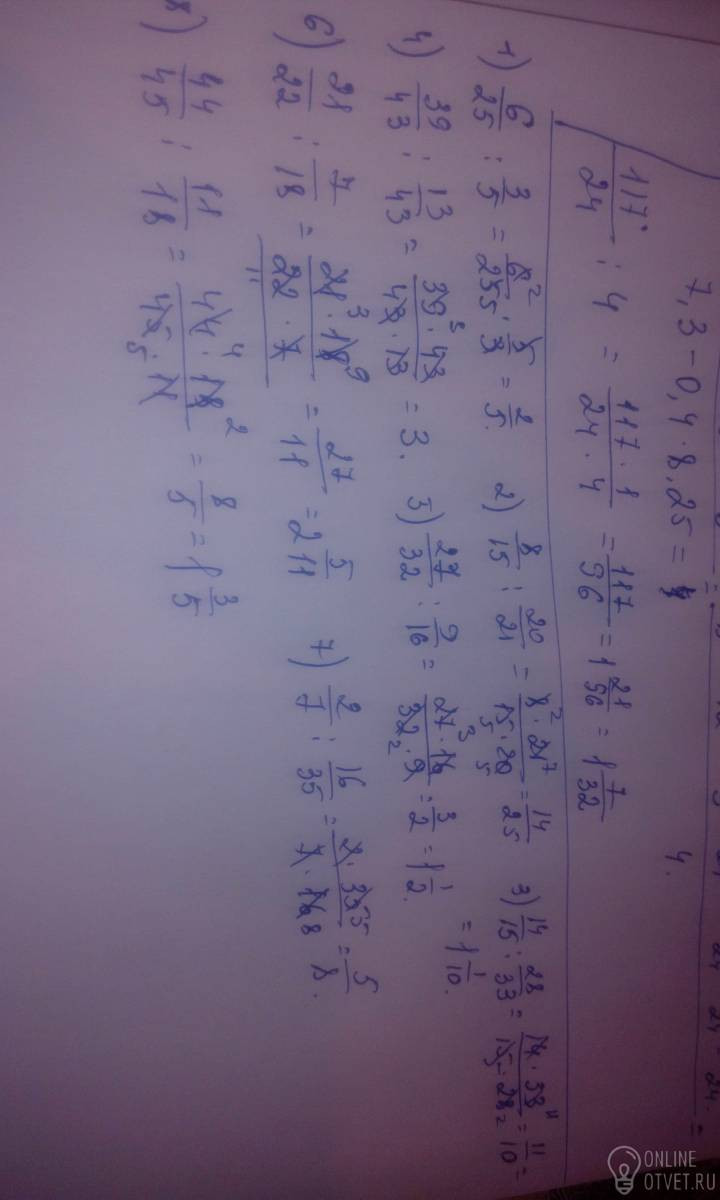 7,3 - 0,4 · 8,25 = 4
4.
117/24 : 4 = 117·1/24·4 = 117/96 = 1 21/96 = 1 7/32
1) 6/25 : 3/5 = 6²/25 5 · 5/3 = 2/5. 2) 8/15 : 20/21 = 8² · 21⁷/15 5 · 20 5 = 14/25 3) 14/15 : 28/33 = 14 · 33 11/15 5 · 28 2 = 11/10 =
= 1 1/10.
4) 39/43 : 13/43 = 39 3 · 43/43 · 13 = 3. 5) 27/32 : 9/16 = 27 3 · 16/32 2 · 9 = 3/2 = 1 1/2.
6) 21/22 : 7/18 = 21 3 · 18 9/22 11 · 7 = 27/11 = 2 5/11 7) 2/7 : 16/35 = 2 · 35 5/7 · 16 8 = 5/8.
8) 44/45 : 11/18 = 44 4 · 18 2/45 5 · 11 = 8/5 = 1 3/5
ONLINE
OTVET.RU